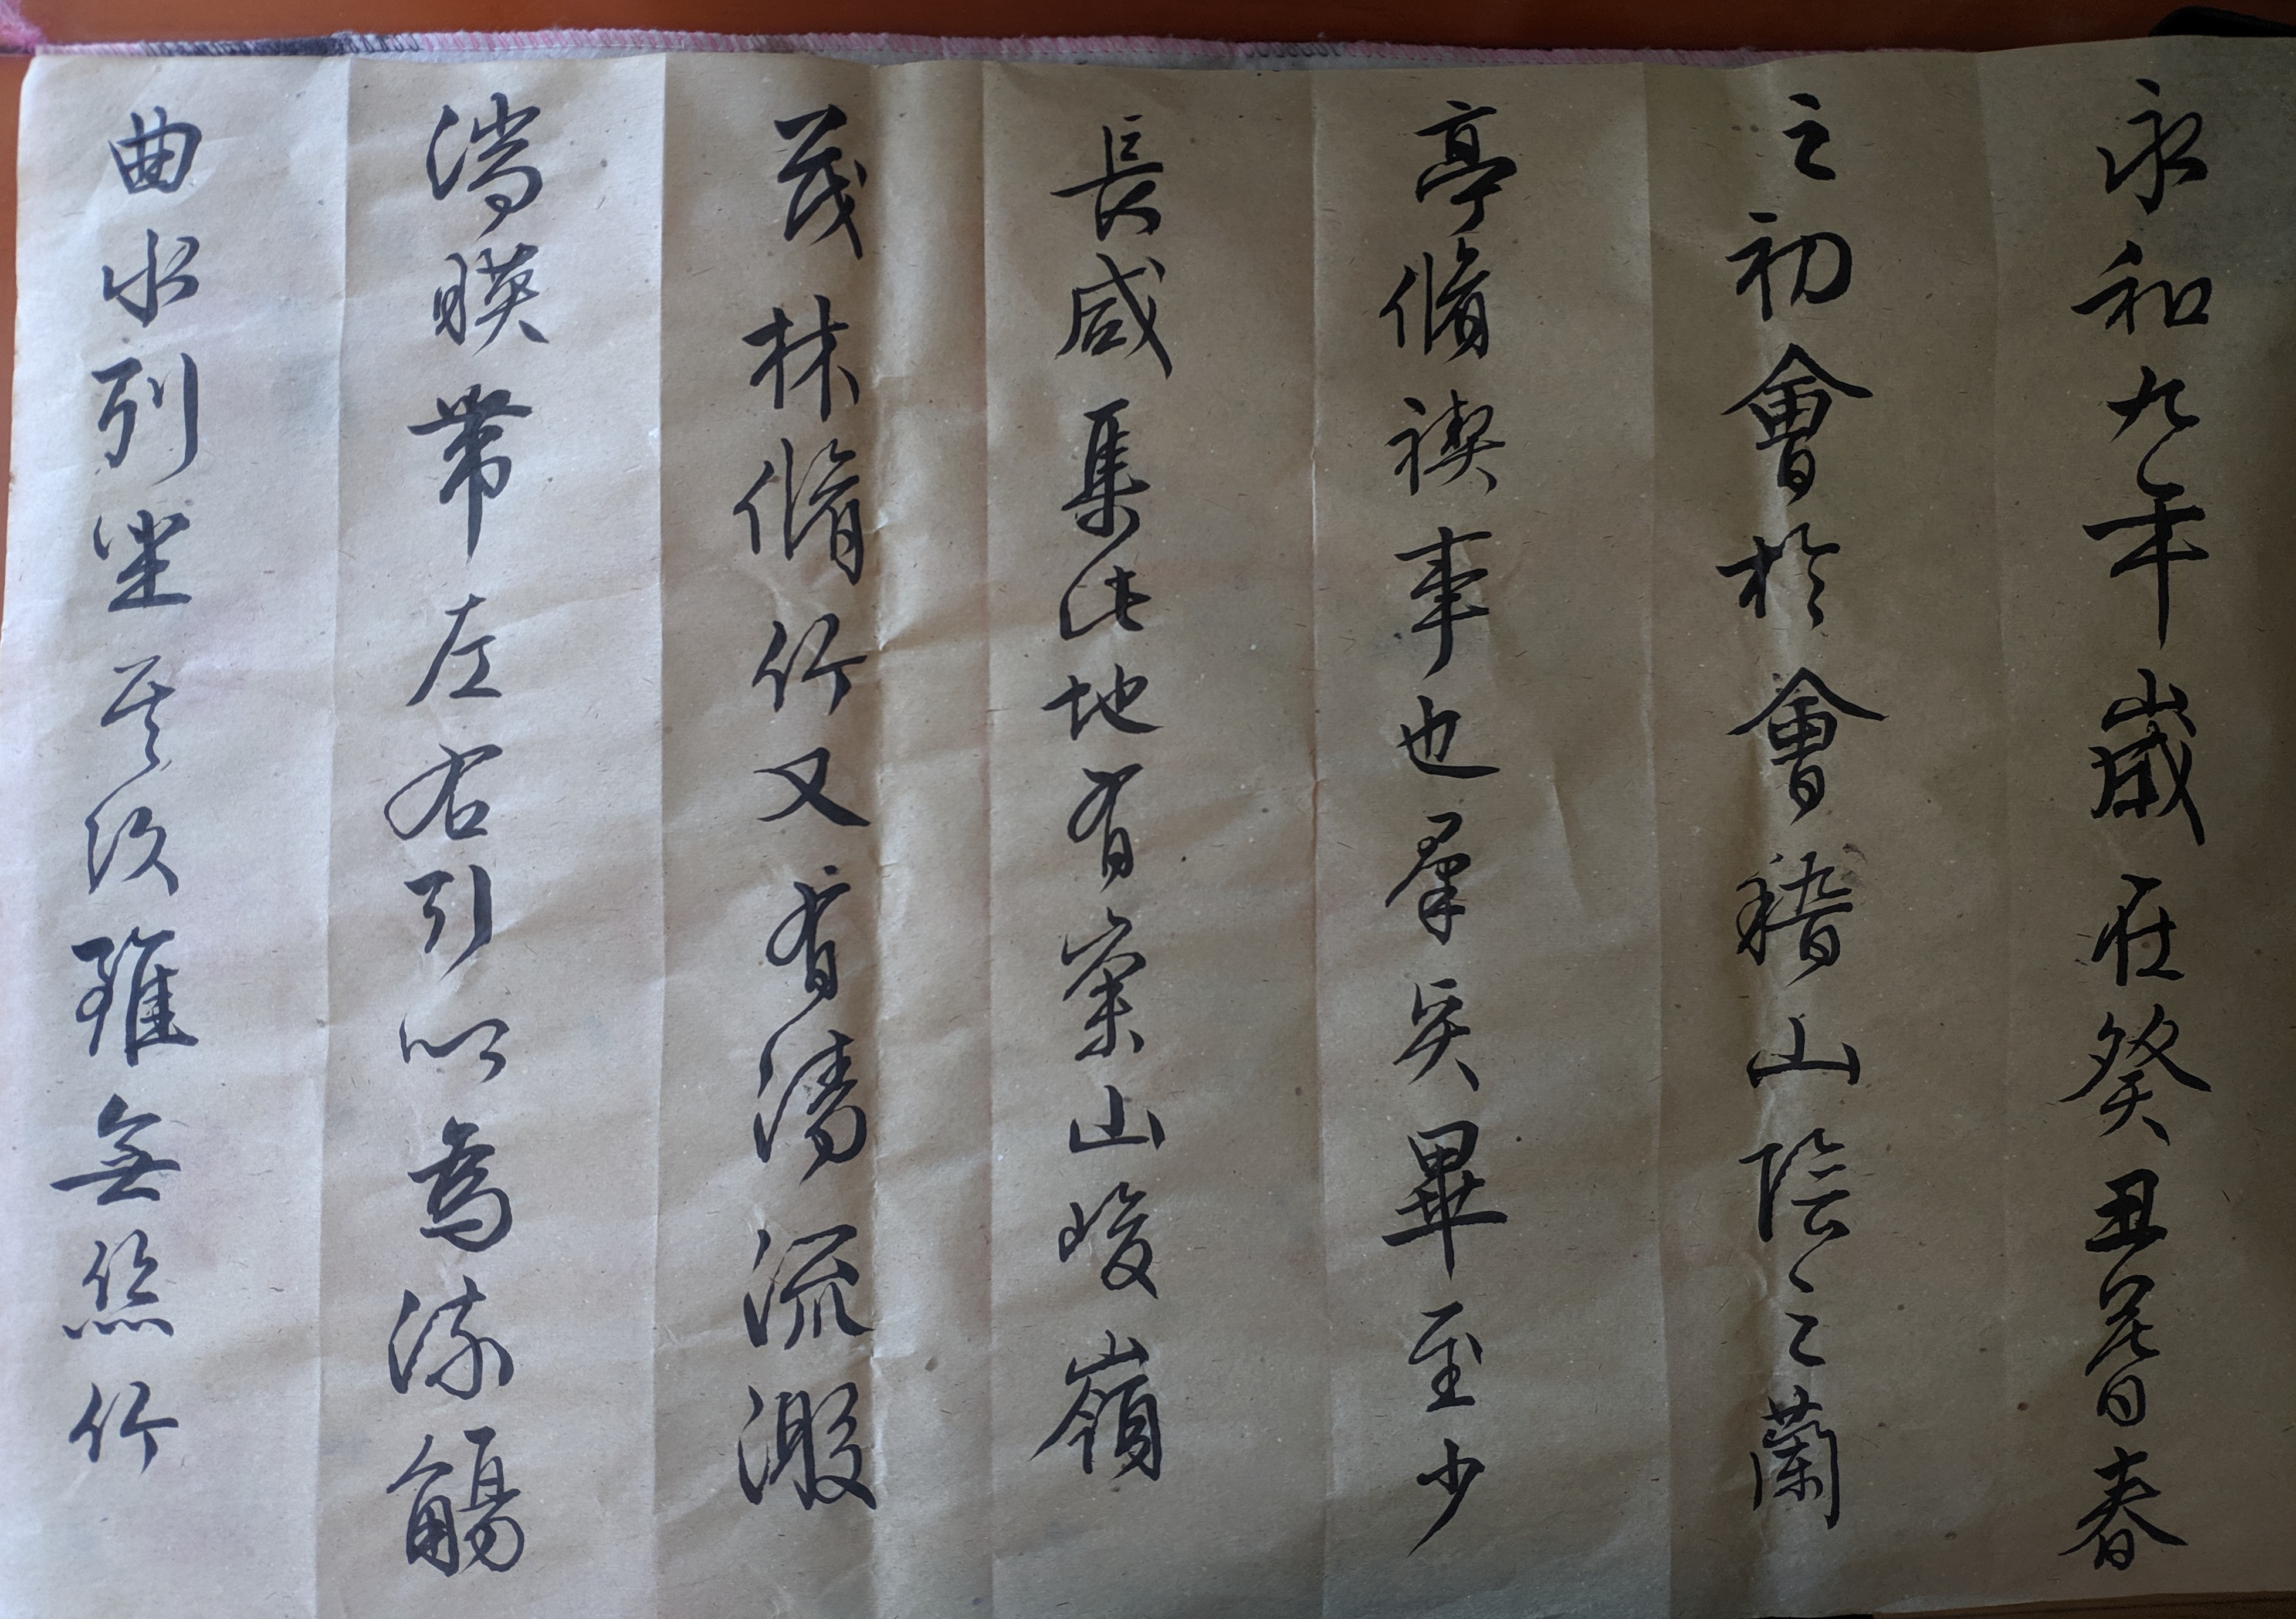 永和九年歲在癸丑暮春
之初會於會稽山陰之蘭
亭脩禊事也羣賢畢至少
長咸集此地有崇山峻嶺
茂林脩竹又有清流激
湍暎帶左右引以為流觴
曲水列坐其次雖無絲竹